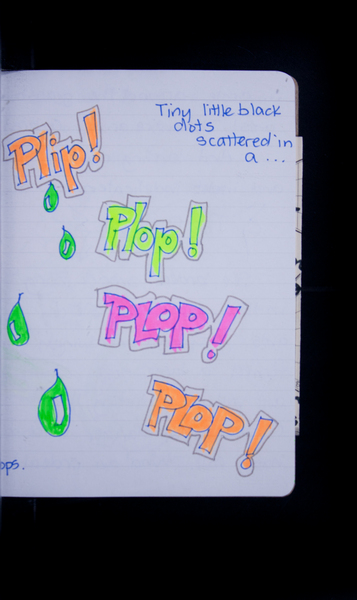 Tiny little black
dots
scattered in
a ...
Plip!
Plop!
PLOP!
PLOP!
ops.